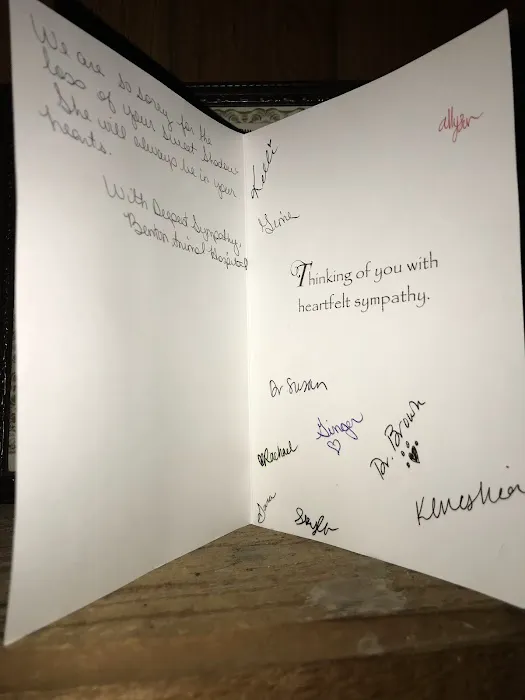 We are so sorry for the
loss of your sweet Shadow
She will always be in your
hearts.
With Deepest Sympathy,
Benton Animal Hospital
allyson
Kelli
Thinking of you with
heartfelt sympathy.
Dr Susan
Ginger
Dr. Brown
Rachael
Kineshia